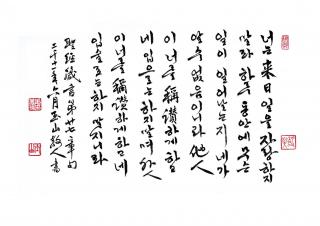 너는 來日 일을 자랑하지
말라 하루 동안에 무슨
일이 일어날는지 네가
알 수 없음이니라 他人
이 너를 稱讚하게 하고
네 입으로는 하지 말며 外人
이 너를 稱讚하게 하고 네
입술로는 하지 말지니라
聖經箴言第廿七章句
六月玉山散人書